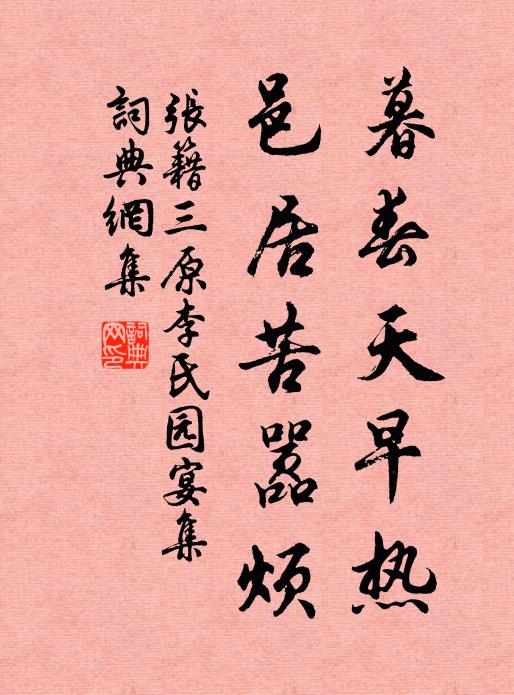 暮春天早热
邑居苦嚣烦
張籍三原李氏园宴集
詞典網集
詞典网印